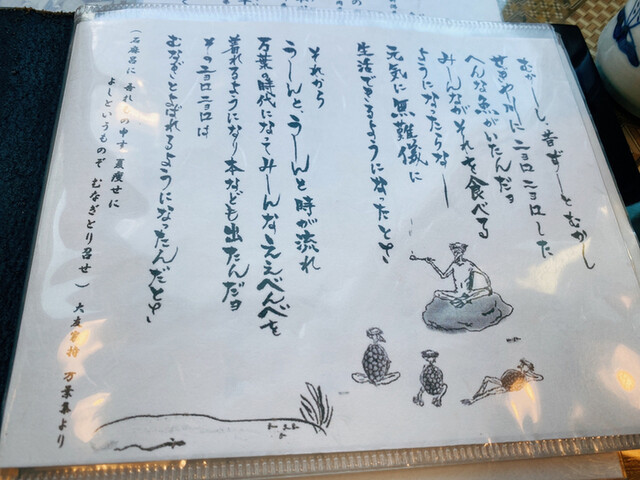 むかーしし、昔ずーとむかし
せきや川にニョロニョロした
へんな魚がいたんだョ
みーんながそれを食べる
ようになったらなー
元気に無難儀に
生活できるようになったとさ
それから
うーんと、うーんと時が流れ
万葉の時代になてみーんなええべんべを
着れるようになり本なども出たんだョ
そのニョロニョロは
むなぎとよばれるようになったんだとさ
(石麻呂に 吾れもの申す 夏痩せに
よしというものぞ むなぎとり召せ) 大友家持 万葉集より